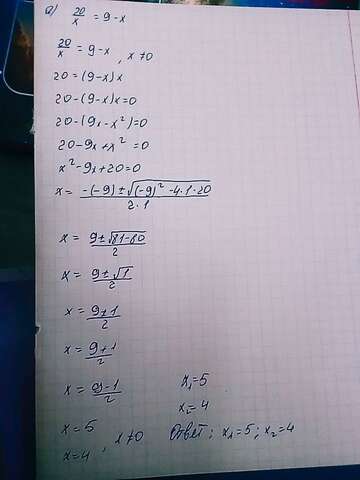 а) 20/x = 9-x
20/x = 9-x, x≠0
20=(9-x)x
20-(9-x)x=0
20-(9x-x²)=0
20-9x+x²=0
x²-9x+20=0
x= -(-9)±√(-9)²-4·1·20 / 2·1
x= 9±√81-80 / 2
x= 9±√1 / 2
x= 9±1 / 2
x= 9+1 / 2
x= 9-1 / 2 x₁=5
x₂=4
x=5
x=4, x≠0 Ответ: x₁=5; x₂=4